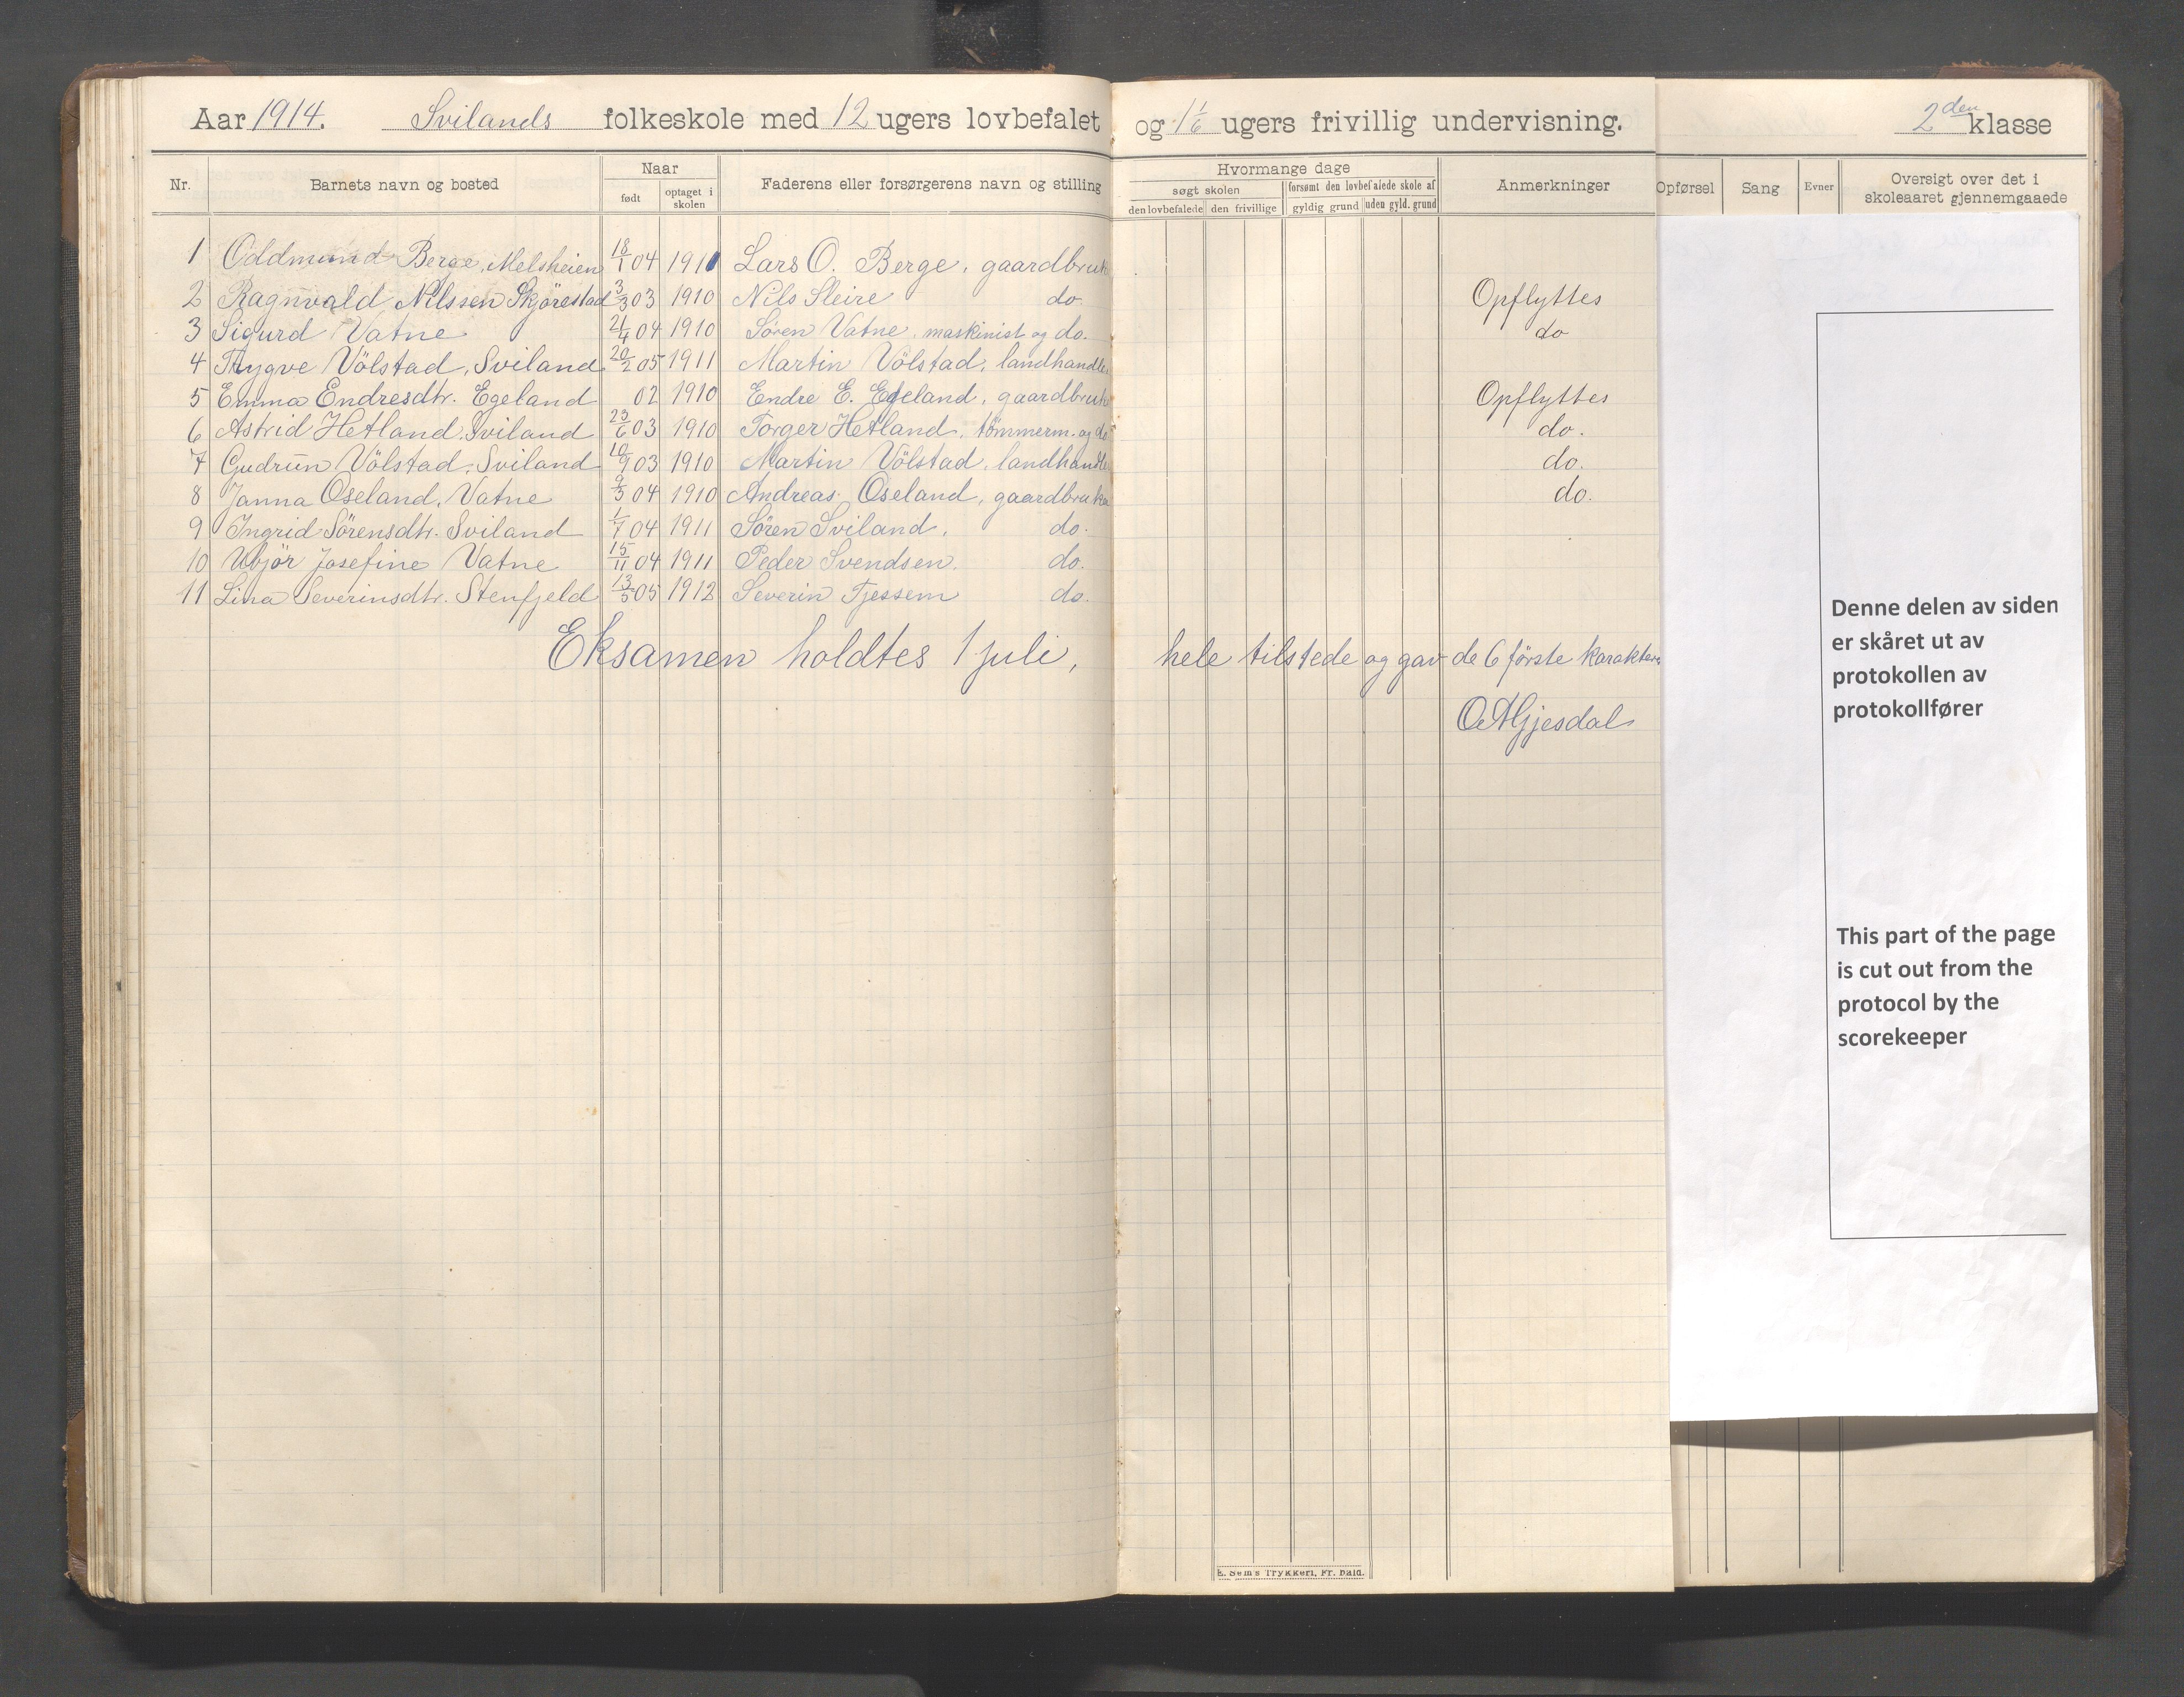 Aar 1914. Svilands folkeskole med 12 ugers lovbefalet og 1 1/6 ugers frivillig undervisning. 2den klasse
Nr. Barnets navn og bosted Naar født optaget i skolen Faderens eller forsørgerens navn og stilling Hvormange dage søgt skolen den lovbefalede den frivillige forsømt den lovbefalede skole af gyldig grund uden gyld. grund Anmerkninger Opførsel Sang Evner Oversigt over det i skoleaaret gjennemgaaede
1 Oddmund Berge, Melsheien 18/1 04 1911 Lars O. Berge, gaardbruk
2 Ragnvald Nilssen Skjörestad 3/3 03 1910 Nils Sleire do. Opflyttes
3 Sigurd Vatne 21/4 04 1910 Sören Vatne, maskinist og do. do
4 Trygve Völstad, Sviland 20/2 05 1911 Martin Völstad, landhandle
5 Emma Endresdtr. Egeland 02 1910 Endre E. Egeland, gaardbruk Opflyttes
6 Astrid Hetland, Sviland 23/6 03 1910 Torger Hetland, tömmerm. og do do.
7 Gudrun Völstad, Sviland 10/9 03 1910 Martin Völstad, landhandle do.
8 Janna Oseland, Vatne 9/3 04 1910 Andreas Oseland, gaardbruke do.
9 Ingrid Sörensdtr. Sviland 1/7 04 1911 Sören Sviland, do.
10 Ubjör Josefine Vatne 15/11 04 1911 Peder Svendsen. do.
11 Lina Severinsdtr. Stenfjeld 13/5 05 1912 Severin Tjessem do.
Eksamen holdtes 1 juli, hele tilstede og gav de 6 förste karakter
O. A. Gjesdal
Denne delen av siden
er skåret ut av
protokollen av
protokollfører
This part of the page
is cut out from the
protocol by the
scorekeeper
E. Sem's Trykkeri, Fr. hald.